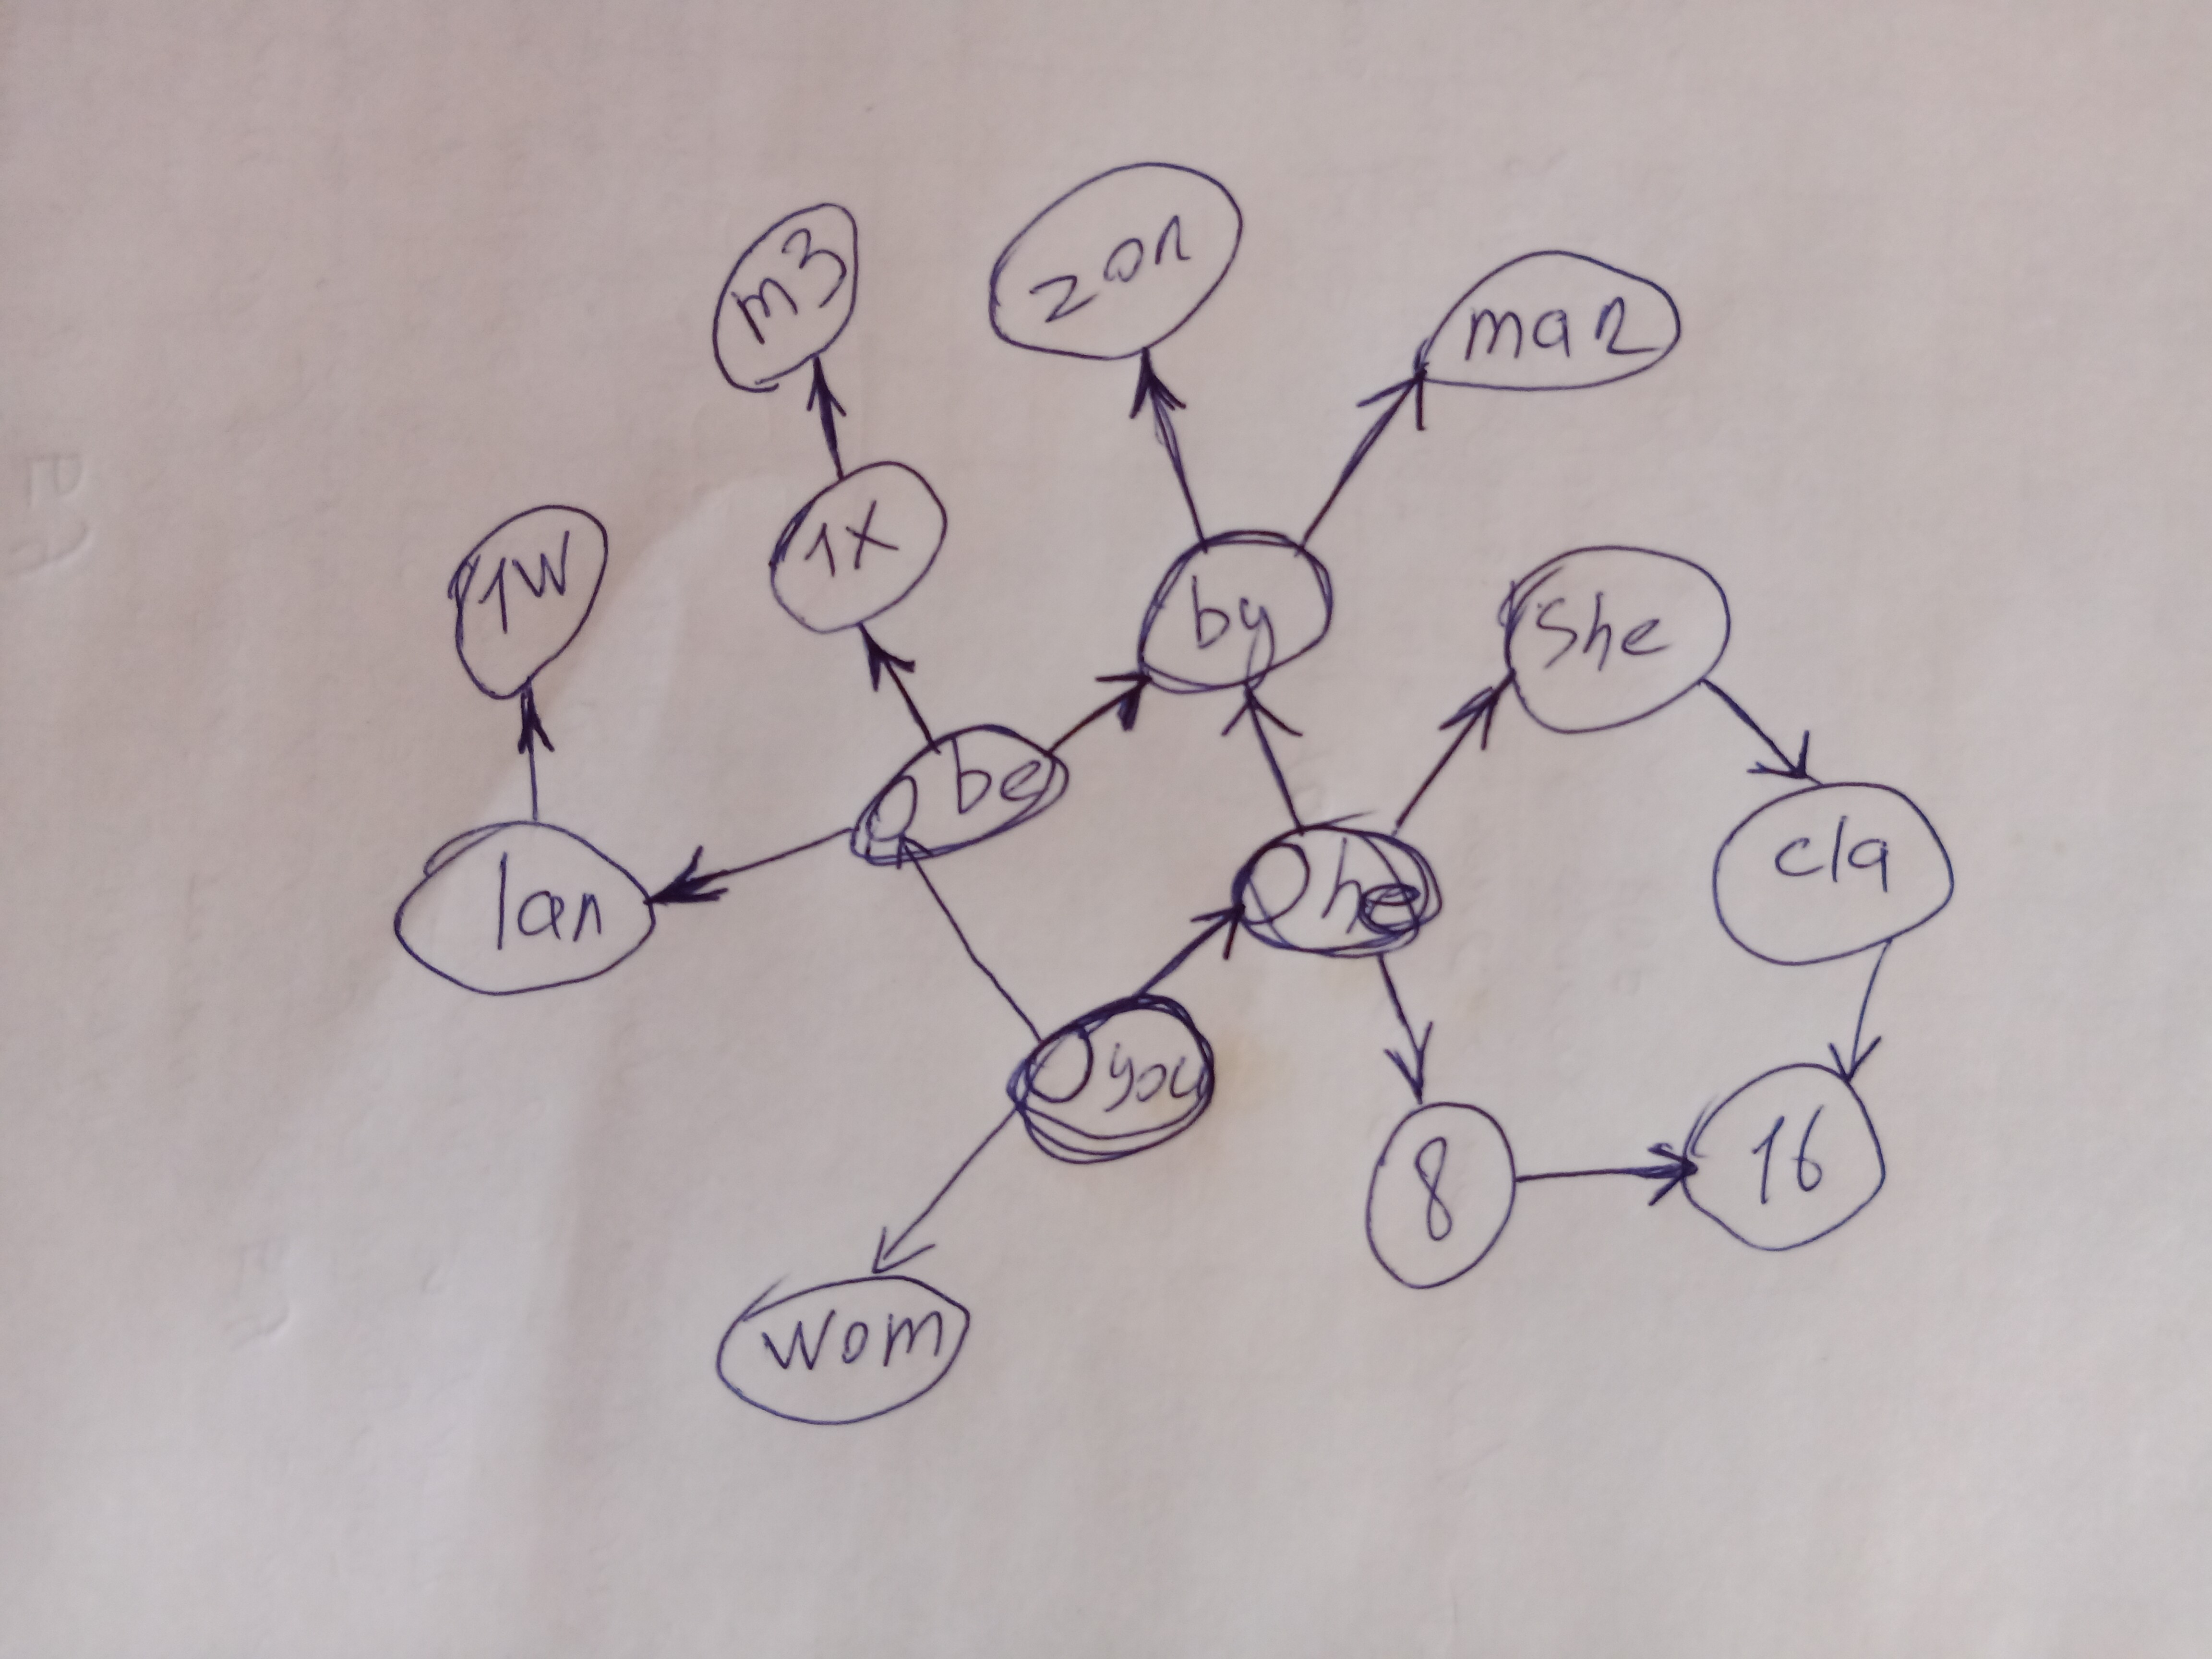 m3
zon
man
1W
1X
by
She
be
lan
he
cla
you
8
16
wom